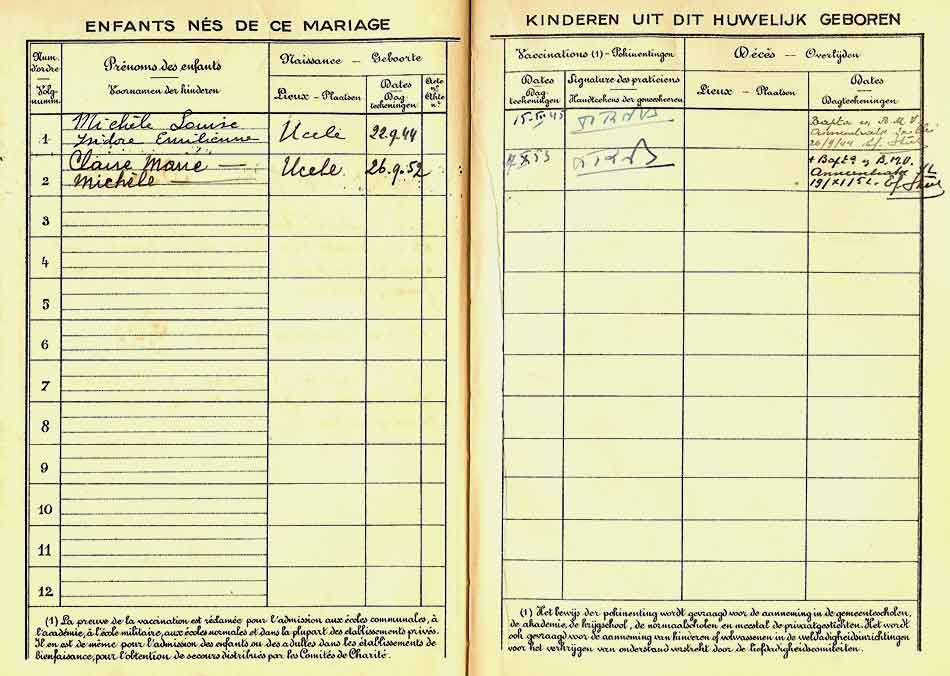 ENFANTS NÉS DE CE MARIAGE
Num.
d'ordre
Volg-
numm.
Prénoms des enfants
Voornamen der kinderen
Naissance – Geboorte
Lieux – Plaatsen
Dates
Dag-
teekeningen
Acte
n°
Akte
n°
1
Michèle Louise
Isidore Emilienne
Uccle
22.9.44
2
Claire Marie —
Michèle —
Uccle.
26.9.52
3
4
5
6
7
8
9
10
11
12
(1) La preuve de la vaccination est réclamée pour l'admission aux écoles communales, à
l'académie, à l'école militaire, aux écoles normales et dans la plupart des etablissements privés.
Il en est de même pour l'admission des enfants ou des adultes dans les établissements de
bienfaisance, pour l'obtention de secours distribués par les Comités de Charité.
KINDEREN UIT DIT HUWELIJK GEBOREN
Vaccinations (1) – Pokinentingen
Dates
Dag-
teekeningen
Signature des praticiens
Handteekens der geneesheeren
Décès – Overlijden
Lieux – Plaatsen
Dates
Dagteekeningen
26/9/44
19/XI/52.
(1) Het bewijs der pokinenting wordt gevraagd voor de aanneming in de gemeentescholen,
de akademie, de krijgschool, de normaalscholen en meestal de privaatgestichten. Het wordt
ook gevraagd voor de aanneming van kinderen of volwassenen in de weldadigheidsinrichtingen
voor het verkrijgen van onderstand verstrekt door de liefdadigheidscomiteiten.